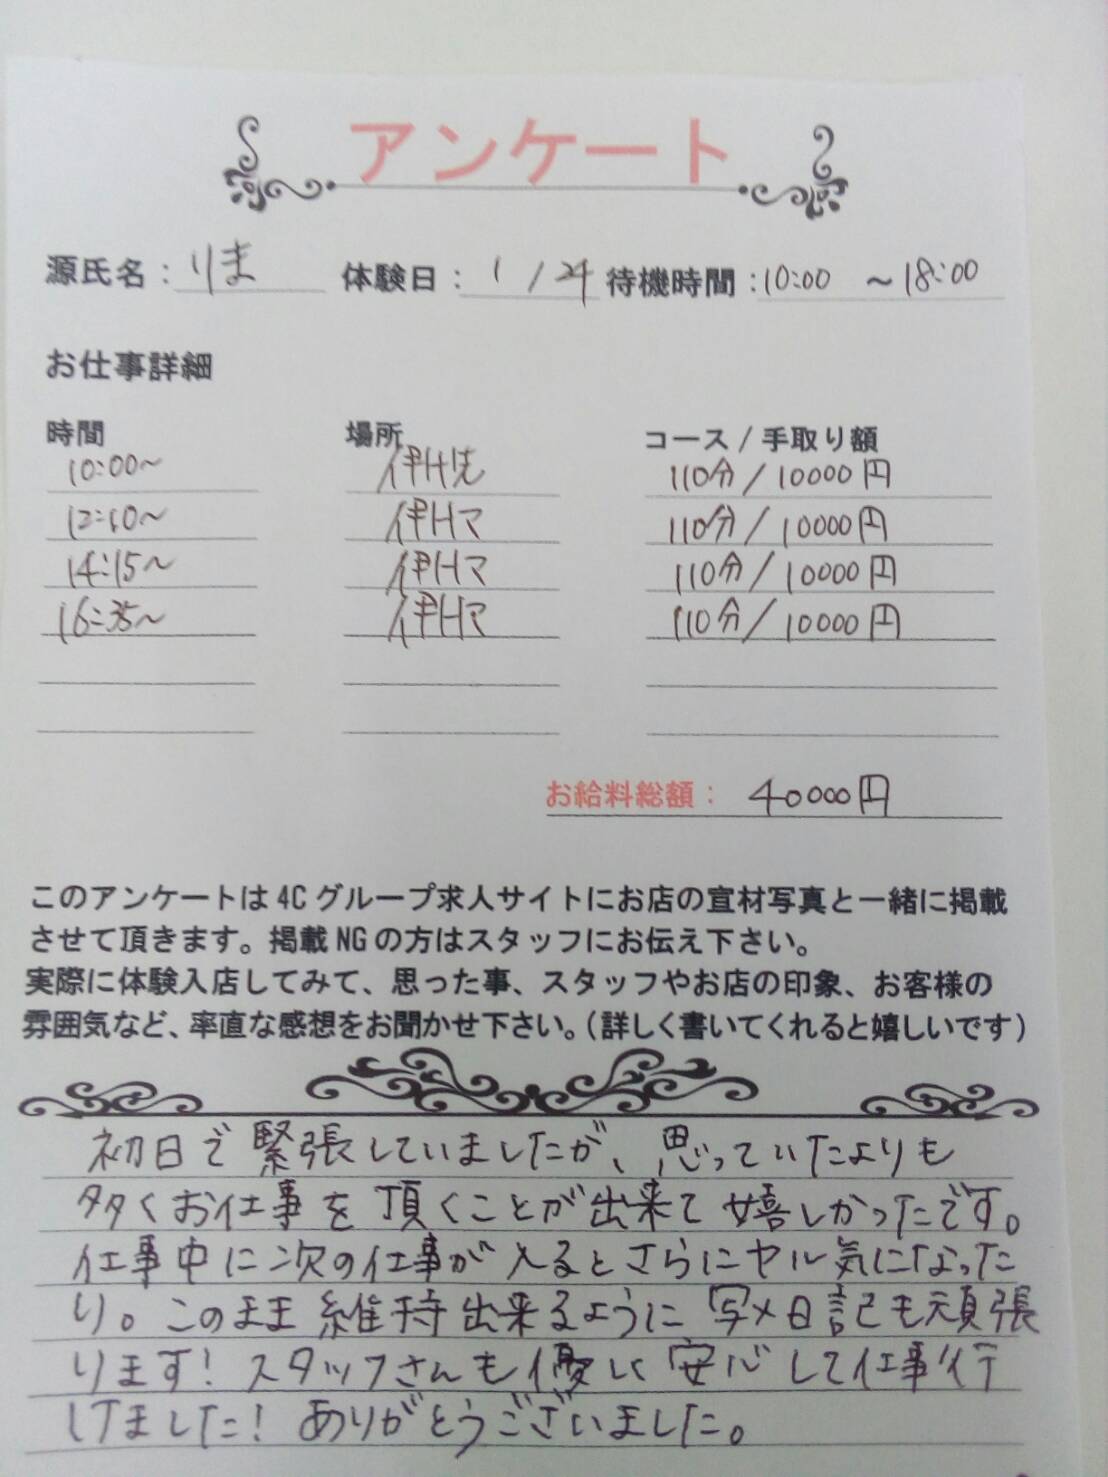 アンケート
源氏名：りま 体験日：1/24 待機時間：10:00 ～18:00
お仕事詳細
時間 場所 コース/手取り額
10:00～ 伊H先 110分/10000円
12:10～ 伊Hマ 110分/10000円
14:15～ 伊Hマ 110分/10000円
16:35～ 伊Hマ 110分/10000円
お給料総額： 40000円
このアンケートは4Cグループ求人サイトにお店の宣材写真と一緒に掲載
させて頂きます。掲載NGの方はスタッフにお伝え下さい。
実際に体験入店してみて、思った事、スタッフやお店の印象、お客様の
雰囲気など、率直な感想をお聞かせ下さい。（詳しく書いてくれると嬉しいです）
初日で緊張していましたが、思っていたよりも
多くお仕事を頂くことが出来て嬉しかったです。
仕事中に次の仕事が入るとさらにヤル気になった
り。このまま維持出来るように写メ日記も頑張
ります！スタッフさんも優しく安心して仕事行
けました！ありがとうございました。